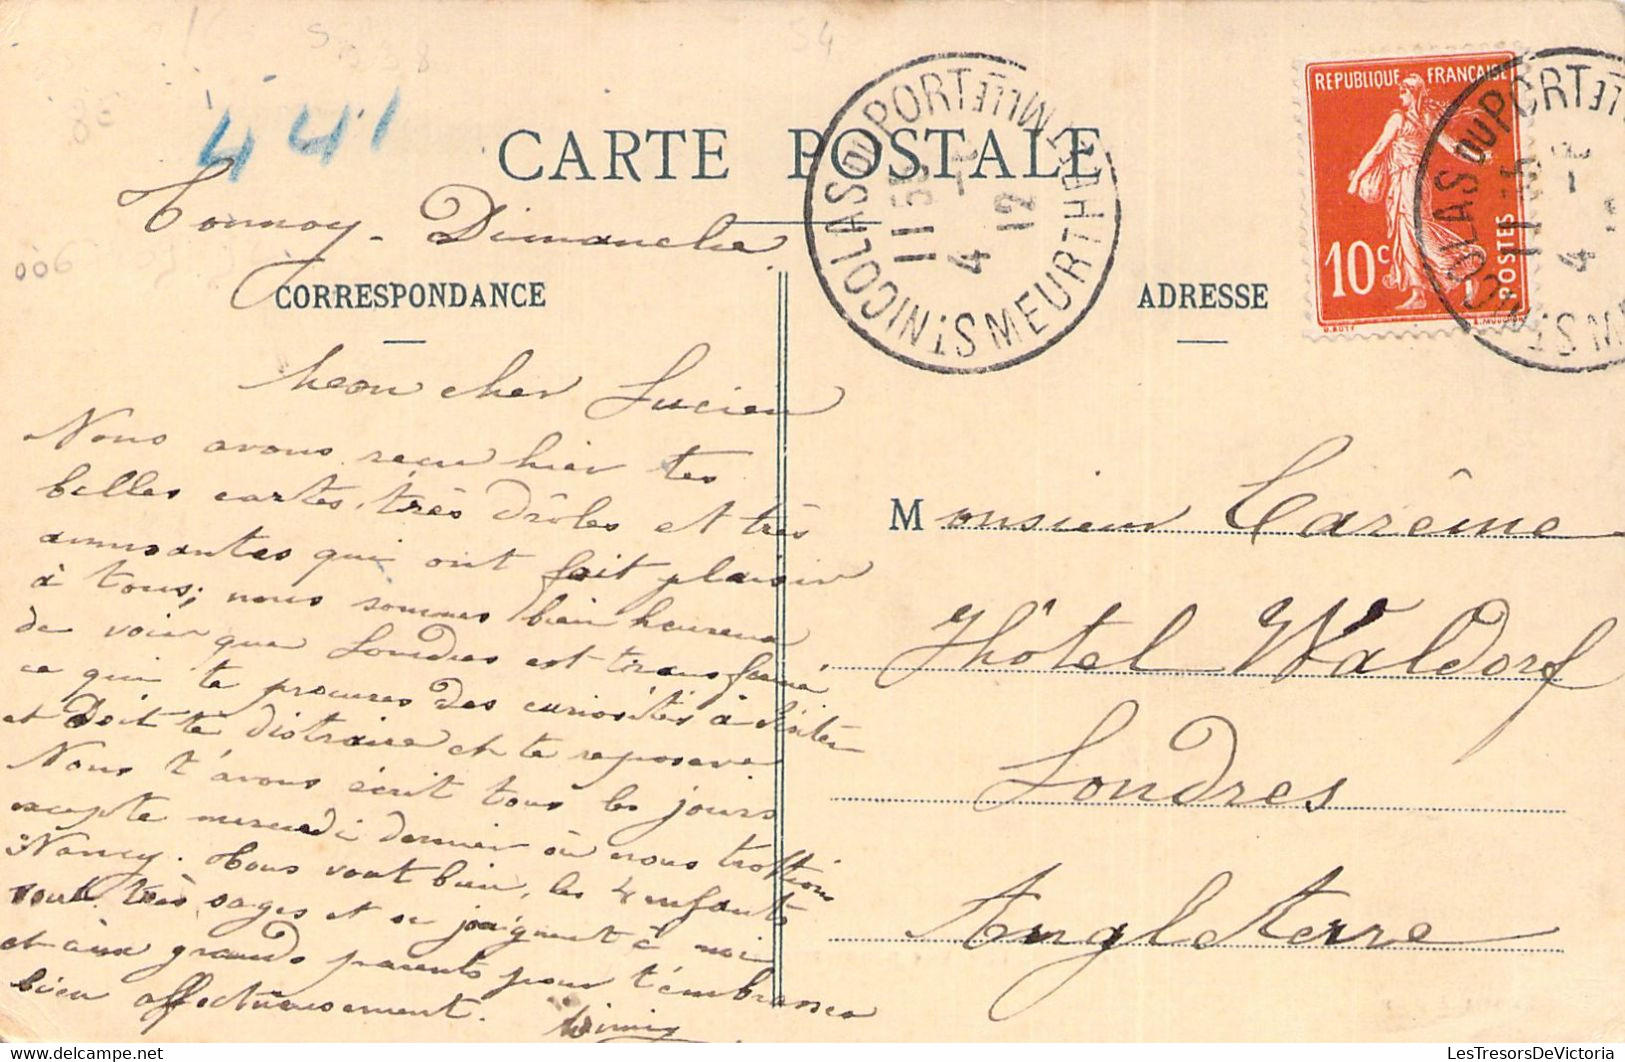 441
CARTE POSTALE
Tonnoy - Dimanche
CORRESPONDANCE
mon cher Lucien
Nous avons recu hier tes
belles cartes, très drôles et très
amusantes qui ont fait plaisir
à tous; nous sommes bien heureux
de voir que Londres est transformé
ce qui te procures des curiosités à visiter
et doit te distraire et te reposer
Nous t'avons écrit tous les jours
excepté mercredi dernier où nous trottions
Nancy. Tous vont bien, les 4 enfants
sont très sages et se joignent à moi
et aux grands parents pour t'embrasser
bien affectueusement.
ST NICOLAS DU PORT MTHE ET MLLE
11 55
4 - 
12
MEURTHE
ADRESSE
REPUBLIQUE FRANÇAISE
10c
POSTES
O. ROTY
Monsieur Carême
Hôtel Waldorf
Londres
Angleterre
LesTresorsDeVictoria